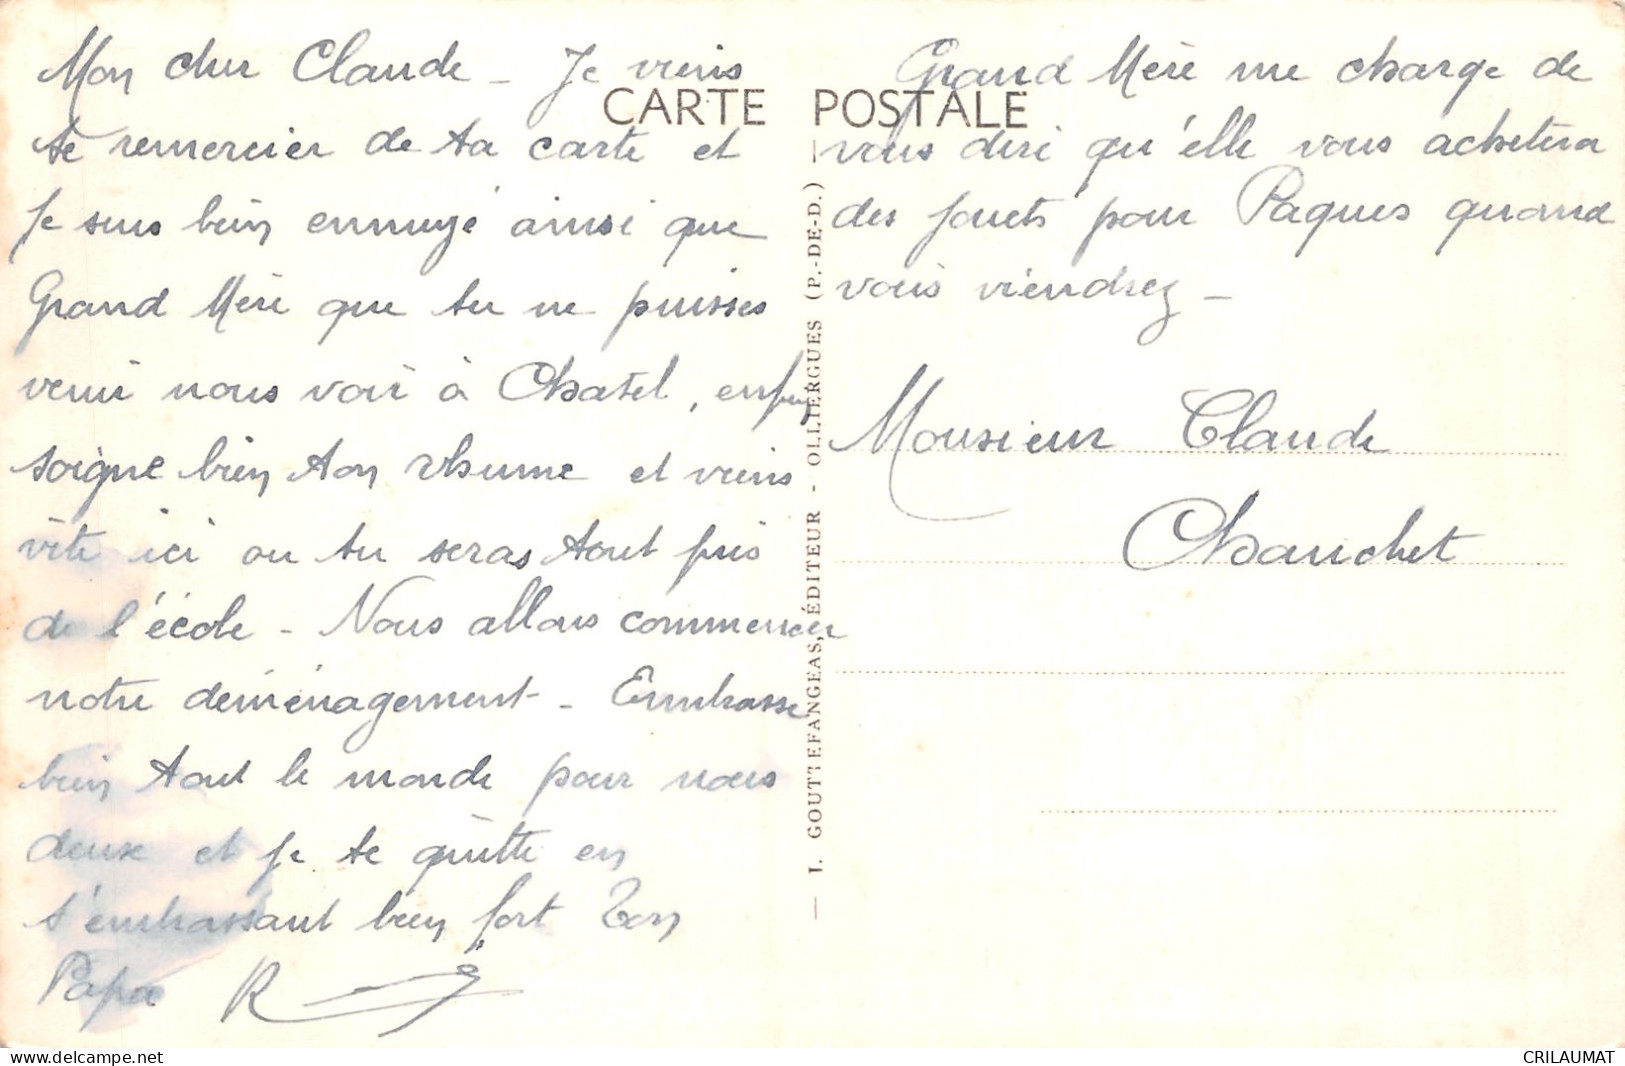 CARTE POSTALE
Mon cher Claude - Je viens
te remercier de ta carte et
je suis bien ennuyé ainsi que
Grand Mère que tu ne puisses
venir nous voir à Chatel, enfin
soigne bien ton rhume et viens
vite ici ou tu seras tout près
de l'école - Nous allons commencer
notre déménagement - Embrasse
bien tout le monde pour nous
deux et je te quitte en
t'embrassant bien fort Ton
Papa R
Grand Mère me charge de
vous dire qu'elle vous achetera
des jouets pour Paques quand
vous viendrez -
Monsieur Claude
Chauchet
— I. GOUTTEFANGEAS, ÉDITEUR - OLLIERGUES (P.-DE-D.) —
www.delcampe.net
CRILAUMAT